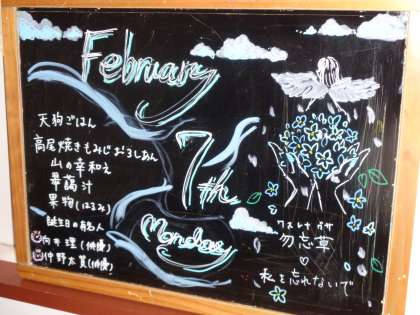 February
7th
Monday
天狗ごはん
高尾焼きもみじおろしあん
山の幸和え
果物(はるみ)
誕生日の有名人
向井 理(俳優)
仲野太賀(俳優)
ワスレナグサ
勿忘草
♡
私を忘れないで